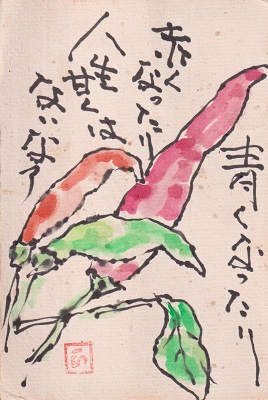 青くなったり
赤くなったり
人生甘くは
ないなァ